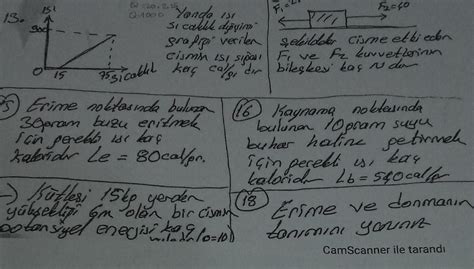 13.
ısı
Yanda ısı
sıcaklık değişimi
grafiği verilen
cismin ısı sığası
kaç cal/g dır
0 15 75 sıcaklık
F2=40
şekildeki cisme etki eden
F1 ve F2 kuvvetlerinin
bileşkesi kaç N dur
15) Erime noktasında bulunan
30 gram buzu eritmek
için gerekli ısı kaç
kaloridir Le = 80 cal/gr.
16 Kaynama noktasında
bulunan 10 gram suyu
buhar haline getirmek
için gerekli ısı kaç
kaloridir Lb = 540 cal/gr
Kütlesi 15 kg yerden
yüksekliği 6m olan bir cismin
potansiyel enerjisi kaç
18 Erime ve donmanın
tanımını yazınız
CamScanner ile tarandı